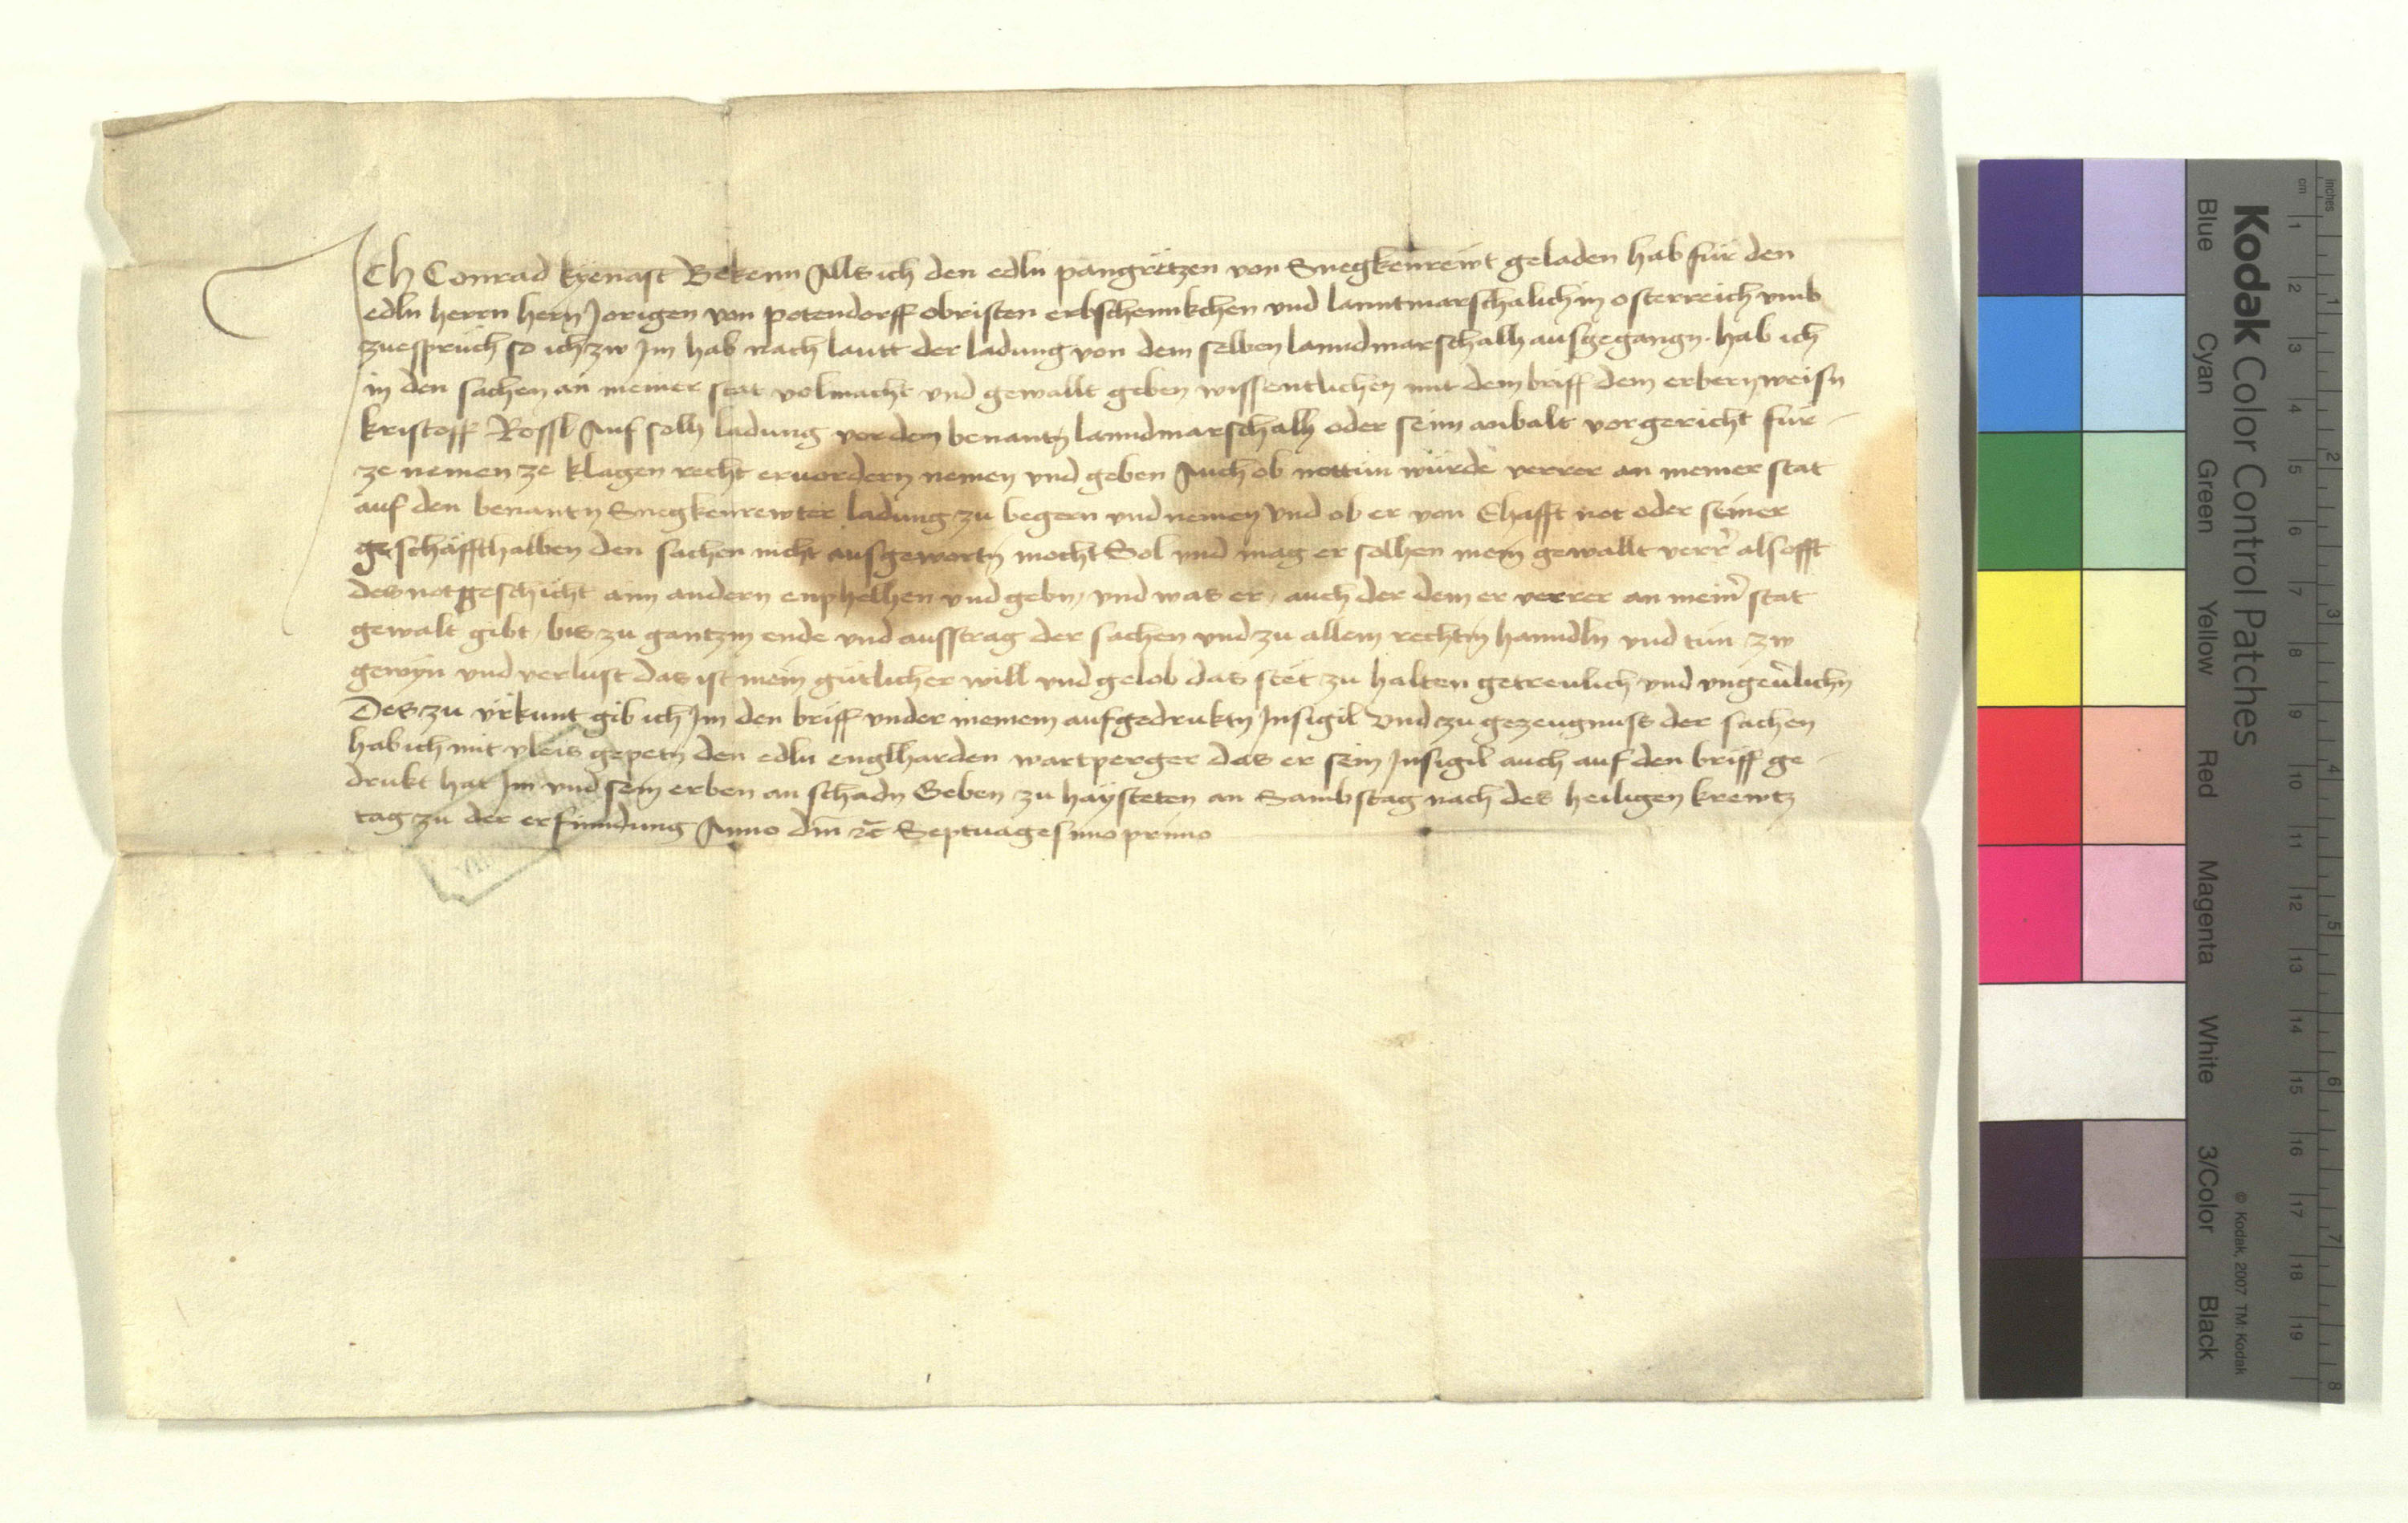 Ich Conrad kyenast Bekenn Alls ich den edln pangretzen von Snegkenrewt geladen hab für den
edln herrn hern Jorigen von potendorff obristen erbschennkchen und lanntmarschalich in osterreich umb
zuesprüch so ich zw Im hab nach lautt der ladung von dem selben lanndmarschalh ausgegangn. hab ich
in den sachen an meiner stat volmacht vnd gewallt geben wissentlichen mit dem briff dem erbern weisn
kristoff Rössl Auf solh ladung vor dem benantn lanndmarschalh oder seim anbalt vor gericht für-
ze nemen ze klagen recht eruordern nemen vnd geben Auch ob nottun würde verrer an meiner stat
auf den benantn Snegkenrewter ladung zu begern vnd nemen vnd ob er von Ehafft not oder seiner
geschäffthalben den sachen nicht ausgewortn mocht Sol vnd mag er solhen mein gewallt verr̉ alsofft
des not geschicht aim andern enphelhen vnd gebn, vnd was er, auch der dem er verrer an mein̉ stat
gewalt gibt, bis zu gantzm ende vnd ausstrag der sachen vnd zu allem rechtn hanndln vnd tün zw
gewyn vnd verlust das ist mein gütlicher will vnd gelob das stét zu halten getreulich vnd vngeu̓lichn
Des zu vrkunt gib ich Im den briff vnder meinem aufgedruktn Insigil vnd zu gezeugnuss der sachen
hab ich mit vleis gepetn den edln englharden wartperger das er sein Insigil auch auf den briff ge-
drukt hat Im vnd sein erben an schadn Geben zu haysteten an Sambstag nach des heiligen krewtz
tag zu der erfinndung Anno dm̅ rc̅ Septuagesimo primo
Kodak Color Control Patches
Blue Cyan Green Yellow Red Magenta White 3/Color Black
© Kodak, 2007 TM: Kodak
inches 1 2 3 4 5 6 7 8
cm 1 2 3 4 5 6 7 8 9 10 11 12 13 14 15 16 17 18 19